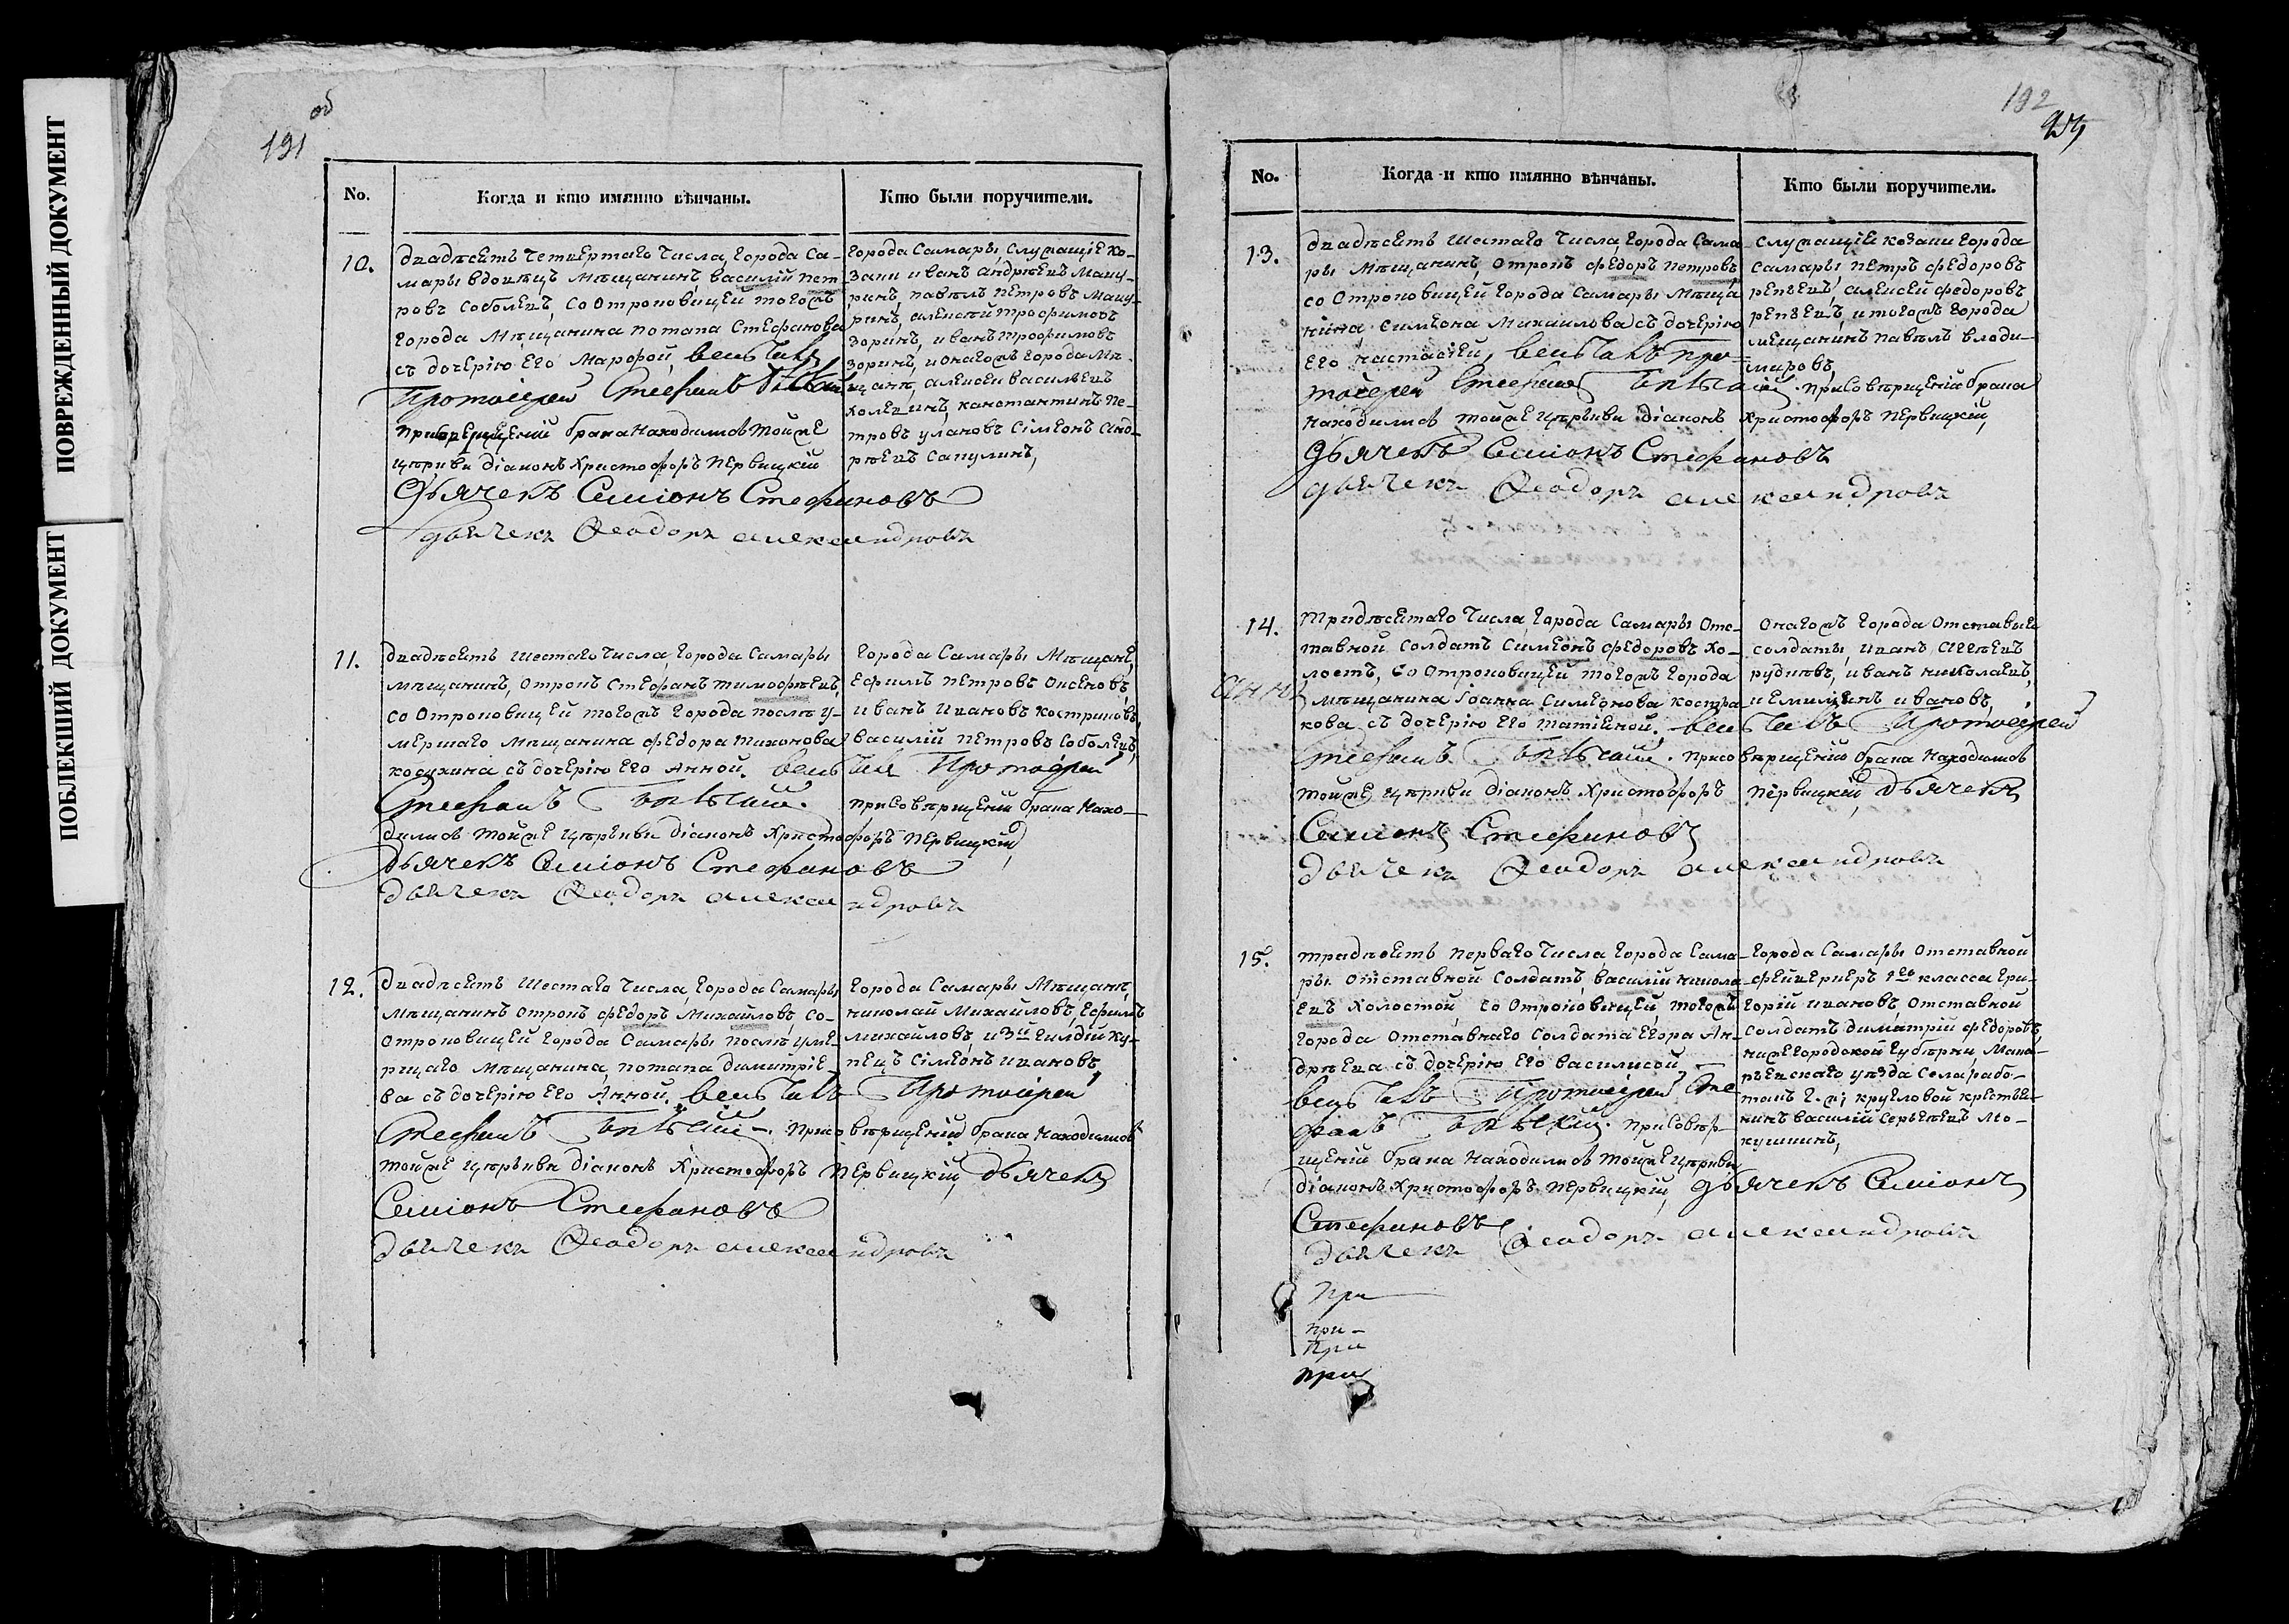 ПОВРЕЖДЕННЫЙ ДОКУМЕНТ
ПОБЛЕКШИЙ ДОКУМЕНТ
191 об
No.
Когда и кто имянно вѣнчаны.
Кто были поручители.
10.
двадѣсеть четвертаго числа, города Са-
мары вдовецъ мѣщанинъ, василій пет
ровъ соболевъ, со отроковицей тогожъ
города мѣщанина потапа стефанова
съ дочерію его марфой, венчалъ
Протоіерей Стефанъ
брака находились тойже
церкви діаконъ христофоръ первицкій
дьячекъ Семіонъ Стефановъ
дьячекъ Феодоръ александровъ
города самары, служащіе ко-
заки иванъ андрѣевъ мацу-
ринъ, павелъ петровъ мацу-
ринъ, алексѣй трофимовъ
зоринъ, иванъ трофимовъ
зоринъ, и онагожъ города мѣ-
щанѣ, алексеи василѣевъ
холевинъ, канстантинъ пе-
тровъ улановъ сімеонъ анд-
рѣевъ сапулинъ,
11.
двадѣсеть шестаго числа, города самары
мѣщанинъ, отрокъ стефанъ тимофѣевъ,
со отроковицей тогожъ города послѣ у-
мершаго мѣщанина федора тихонова
косухина съ дочерію его анной. венчалъ Протоіерей
Стефанъ
при совершеніи брака нахо-
дились тойже церкви діаконъ христофоръ первицкій,
дьячекъ Семіонъ Стефановъ
дьячекъ Феодоръ александровъ
города самары мѣщанѣ,
ефимъ петровъ оксеновъ,
иванъ ивановъ костриковъ,
василій петровъ соболевъ,
12.
двадѣсеть шестаго числа, города самары
мѣщанинъ отрокъ федоръ михайловъ, со-
отроковицей города самары послѣ уме-
ршаго мѣщанина, потапа димитріе-
ва съ дочерію его анной. венчалъ Протоіерей
Стефанъ
при совершеніи брака находились
тойже церькви діаконъ христофоръ первицкій, дьячекъ
Семіонъ Стефановъ
дьячекъ Феодоръ александровъ
города самары мѣщанѣ,
николай михайловъ, ефимъ
михайловъ, и 3ей гилдій ку-
пецъ сімеонъ ивановъ,
192
No.
Когда и кто имянно вѣнчаны.
Кто были поручители.
13.
двадѣсеть шестаго числа, города сама-
ры мѣщанинъ, отрокъ федоръ петровъ,
со отроковицей города самары мѣща
нина симеона михаилова съ дочерію
его настасіей, венчалъ про-
тоіерей Стефанъ при совершеніи брака
находились тойже церькви діаконъ христофоръ первицкій,
дьячекъ Семіонъ Стефановъ
дьячекъ Феодоръ александровъ
служащіи козаки города
самары, петръ федоровъ
репѣевъ, алексей федоровъ
репѣевъ, и тогожъ города
мещанинъ павелъ влоди-
мировъ,
14.
тридѣсятаго числа, города самары отс-
тавной солдатъ симеонъ федоровъ хо-
лостъ, со отроковицей тогожъ города
мѣщанина іоанна симеонова костри-
кова съ дочерію его татіеной. венчалъ Протоіерей
Стефанъ при совершеніи брака находились
тойже церкви діаконъ христофоръ первицкій, дьячекъ
Семіонъ Стефановъ
дьячекъ Феодоръ александровъ
онагожъ города отставые
солдаты, иванъ
иванъ николаевъ,
и емиліянъ ивановъ,
15.
тридѣсеть перваго числа, города сама-
ры отставной солдатъ, василій никола-
евъ холостой, со отроковицей, тогожъ
города отставнаго солдата егора ан-
дрѣева съ дочерію его василисой,
венчалъ Протоіерей Сте
фанъ при совер-
шеніи брака находились тойже церкви
діаконъ христофоръ первицкій, дьячекъ Семіонъ
Стефановъ
дьячекъ Феодоръ александровъ
города самары отставной
фейверкеръ 1го класса гри-
горій ивановъ, отставной
солдатъ димитрій федоровъ,
нижегородской губерни, мака-
рьевскаго уезда села рабо-
токъ крестья-
нинъ василій сергѣевъ мо-
кушинъ,
При
при
При
при